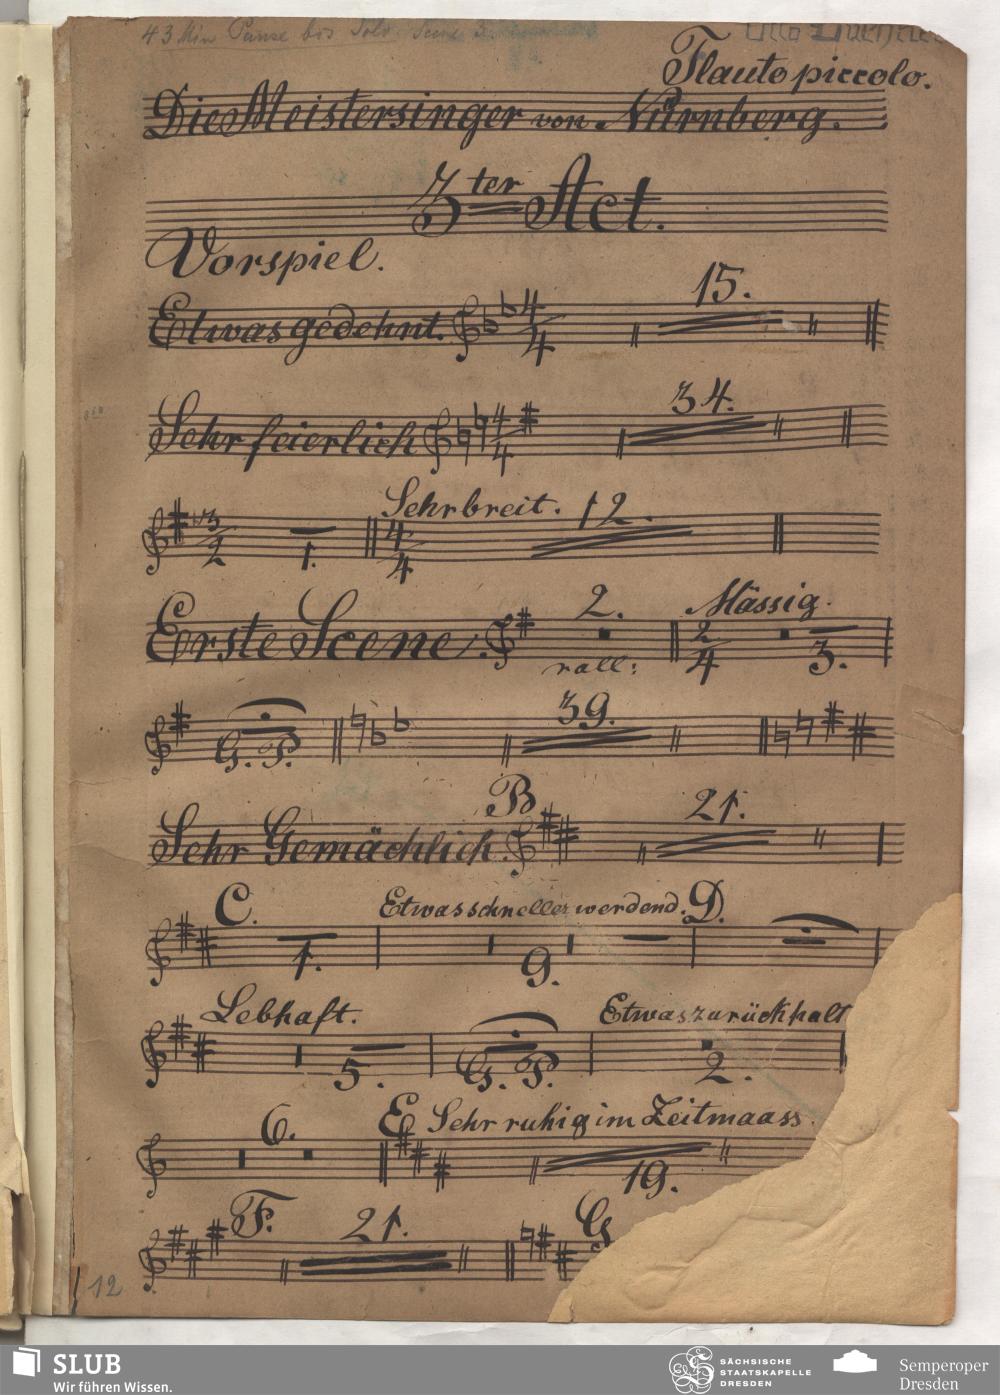 43 Min Pause bis
Flauto piccolo.
Die Meistersinger von Nürnberg.
3ter Act.
Vorspiel.
15.
Etwas gedehnt. 4/4
34.
Sehr feierlich 4/4
Sehr breit. 12.
3/2 1. 4/4
2. Mässig.
Erste Scene. rall: 2/4 3.
39.
G. P.
B 21.
Sehr Gemächlich.
C. Etwas schneller werdend. D.
1. 9.
Lebhaft. Etwas zurückhalt
5. G. P. 2.
6. E Sehr ruhig im Zeitmaass.
19.
F. 21. G
12
SLUB
Wir führen Wissen.
SÄCHSISCHE
STAATSKAPELLE
DRESDEN
Semperoper
Dresden